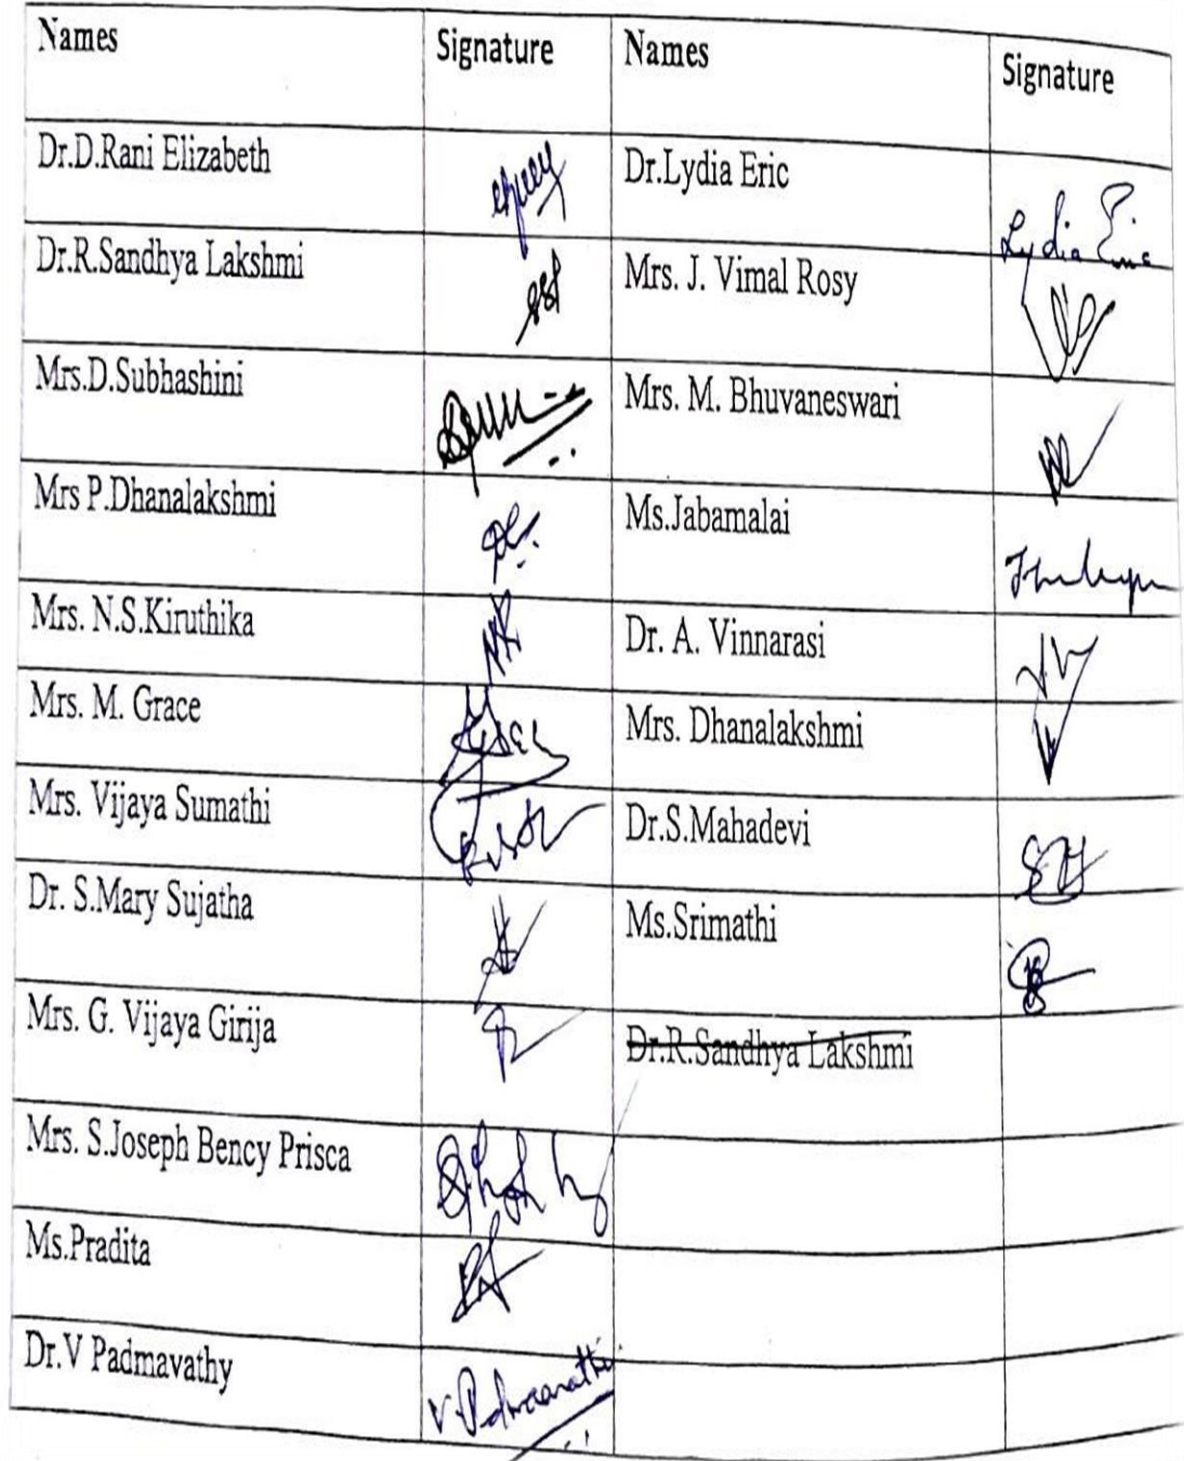 Names Signature Names Signature
Dr.D.Rani Elizabeth Dr.Lydia Eric Lydia Eric
Dr.R.Sandhya Lakshmi Mrs. J. Vimal Rosy
Mrs.D.Subhashini Mrs. M. Bhuvaneswari
Mrs P.Dhanalakshmi Ms.Jabamalai
Mrs. N.S.Kiruthika NK Dr. A. Vinnarasi
Mrs. M. Grace Mrs. Dhanalakshmi
Mrs. Vijaya Sumathi Dr.S.Mahadevi
Dr. S.Mary Sujatha Ms.Srimathi
Mrs. G. Vijaya Girija Dr.R.Sandhya Lakshmi
Mrs. S.Joseph Bency Prisca
Ms.Pradita
Dr.V Padmavathy V. Padmavathy